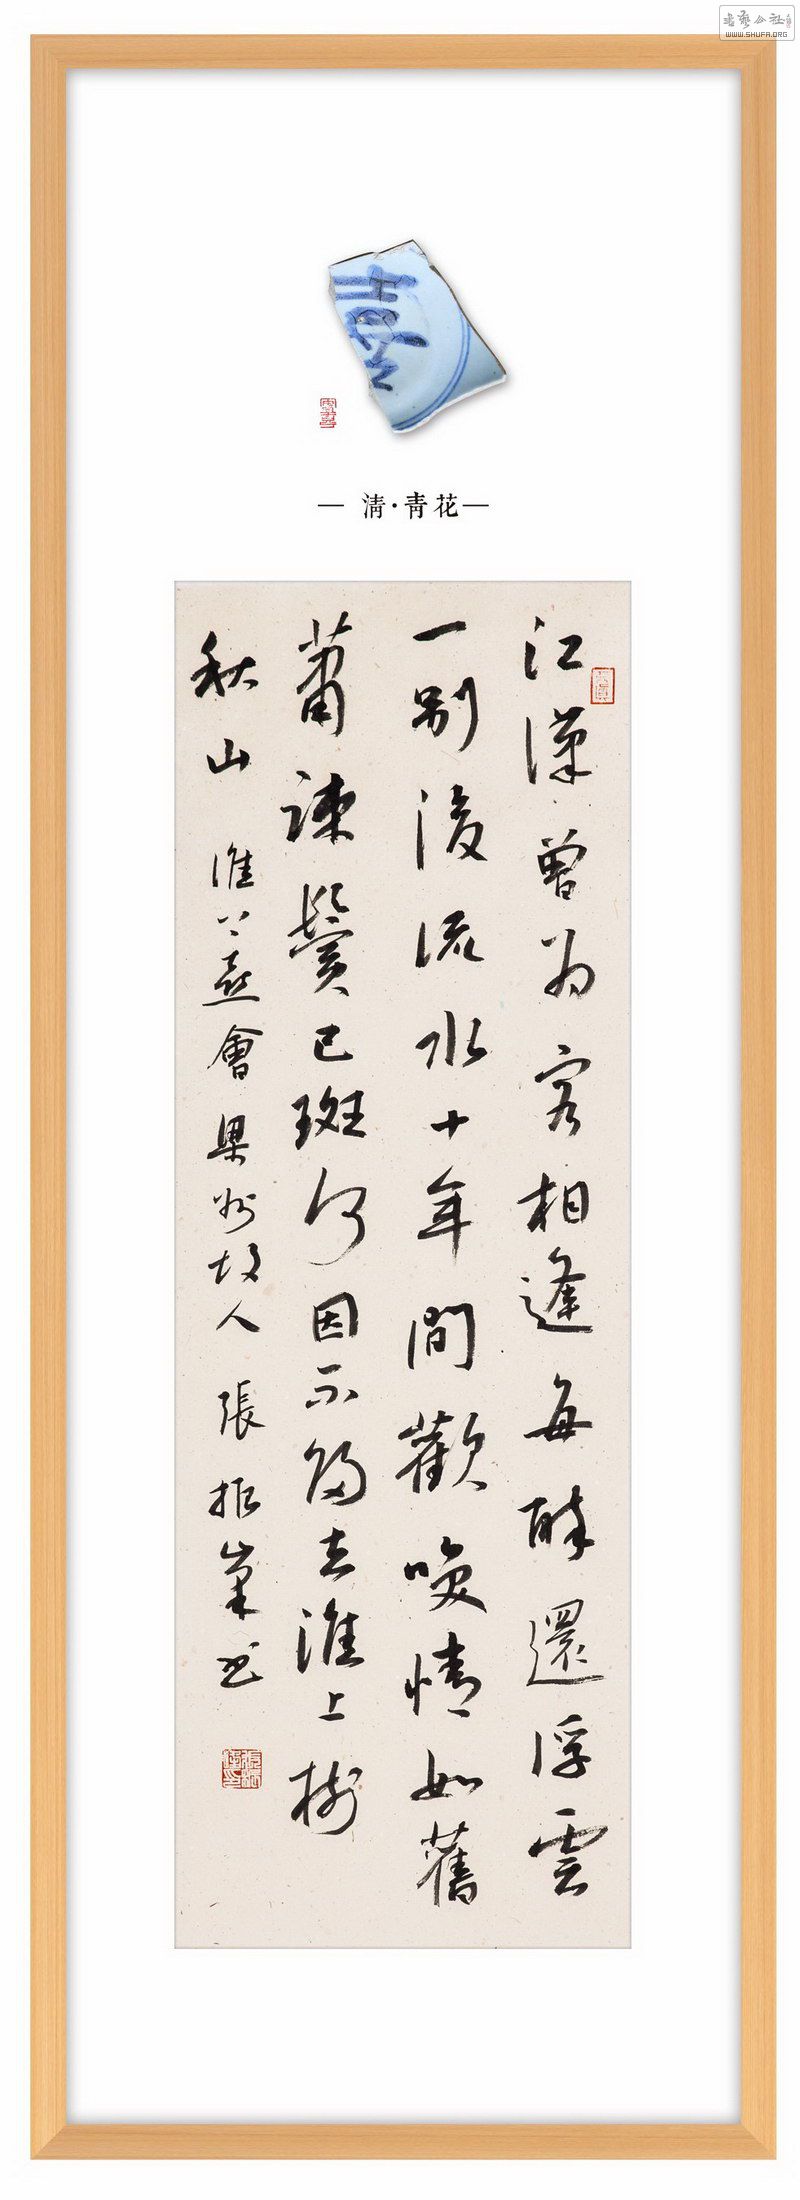 書藝公社
WWW.SHUFA.ORG
— 清·青花—
江漢曾為客相逢每醉還浮雲
一別後流水十年間歡咲情如舊
蕭疎鬢已斑何因不歸去淮上對
秋山 淮上喜會梁州故人 張振 書